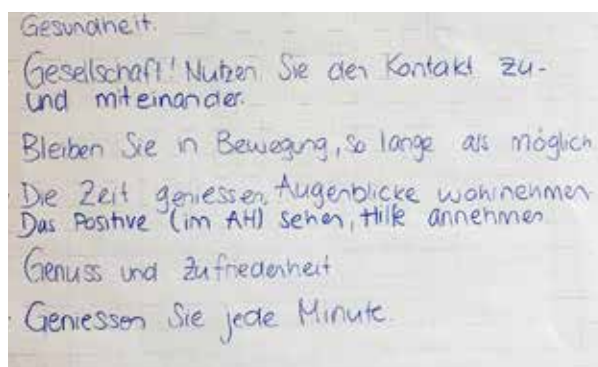 Gesundheit.
Gesellschaft! Nutzen Sie den Kontakt zu-
und miteinander.
Bleiben Sie in Bewegung, so lange als möglich
Die Zeit geniessen, Augenblicke wahrnehmen
Das Positive (im AH) sehen, Hilfe annehmen
Genuss und Zufriedenheit
Geniessen Sie jede Minute.